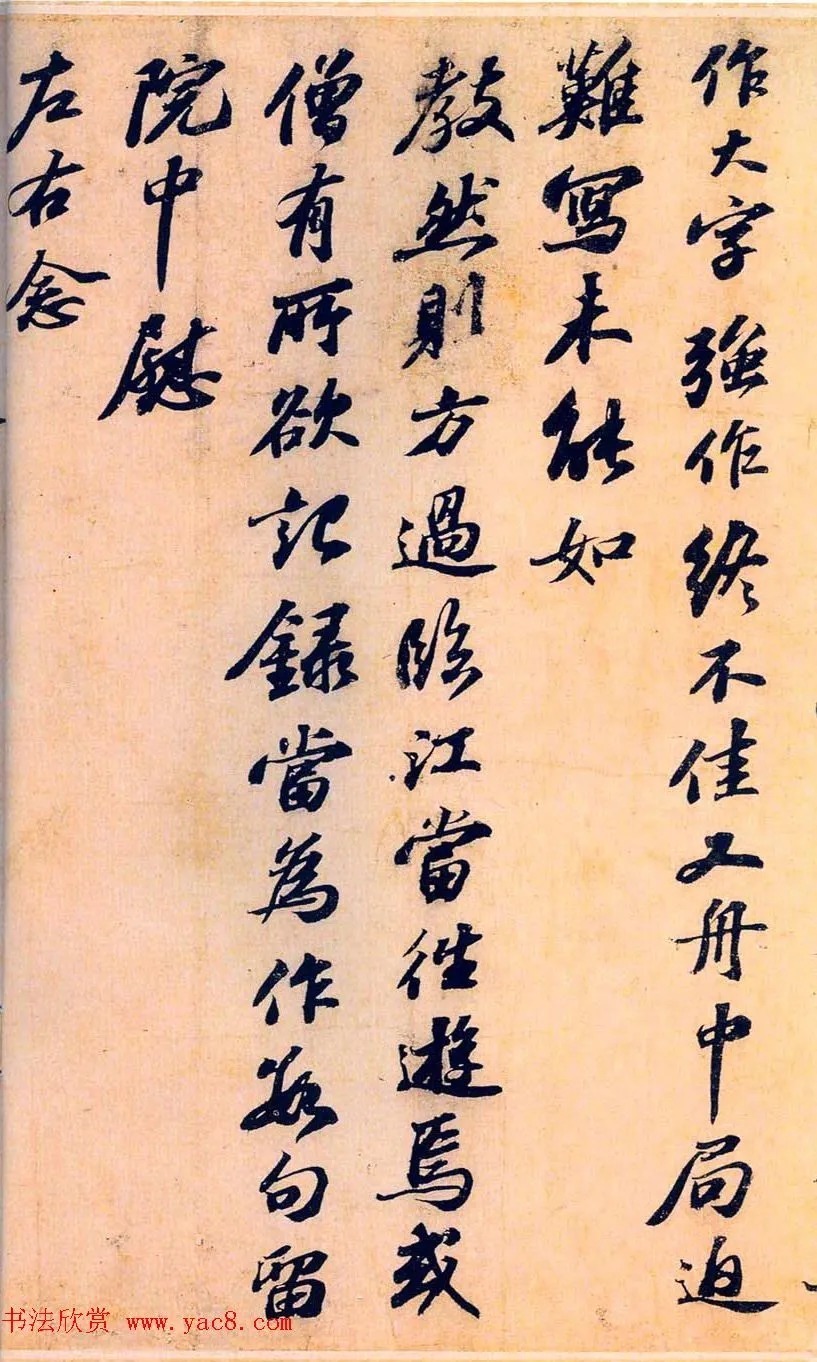 作大字强作終不佳又舟中局迫
難寫未能如
教然則方過臨江當往遊焉或
僧有所欲記録當為作數句留
院中慰
左右念
书法欣赏 www.yac8.com